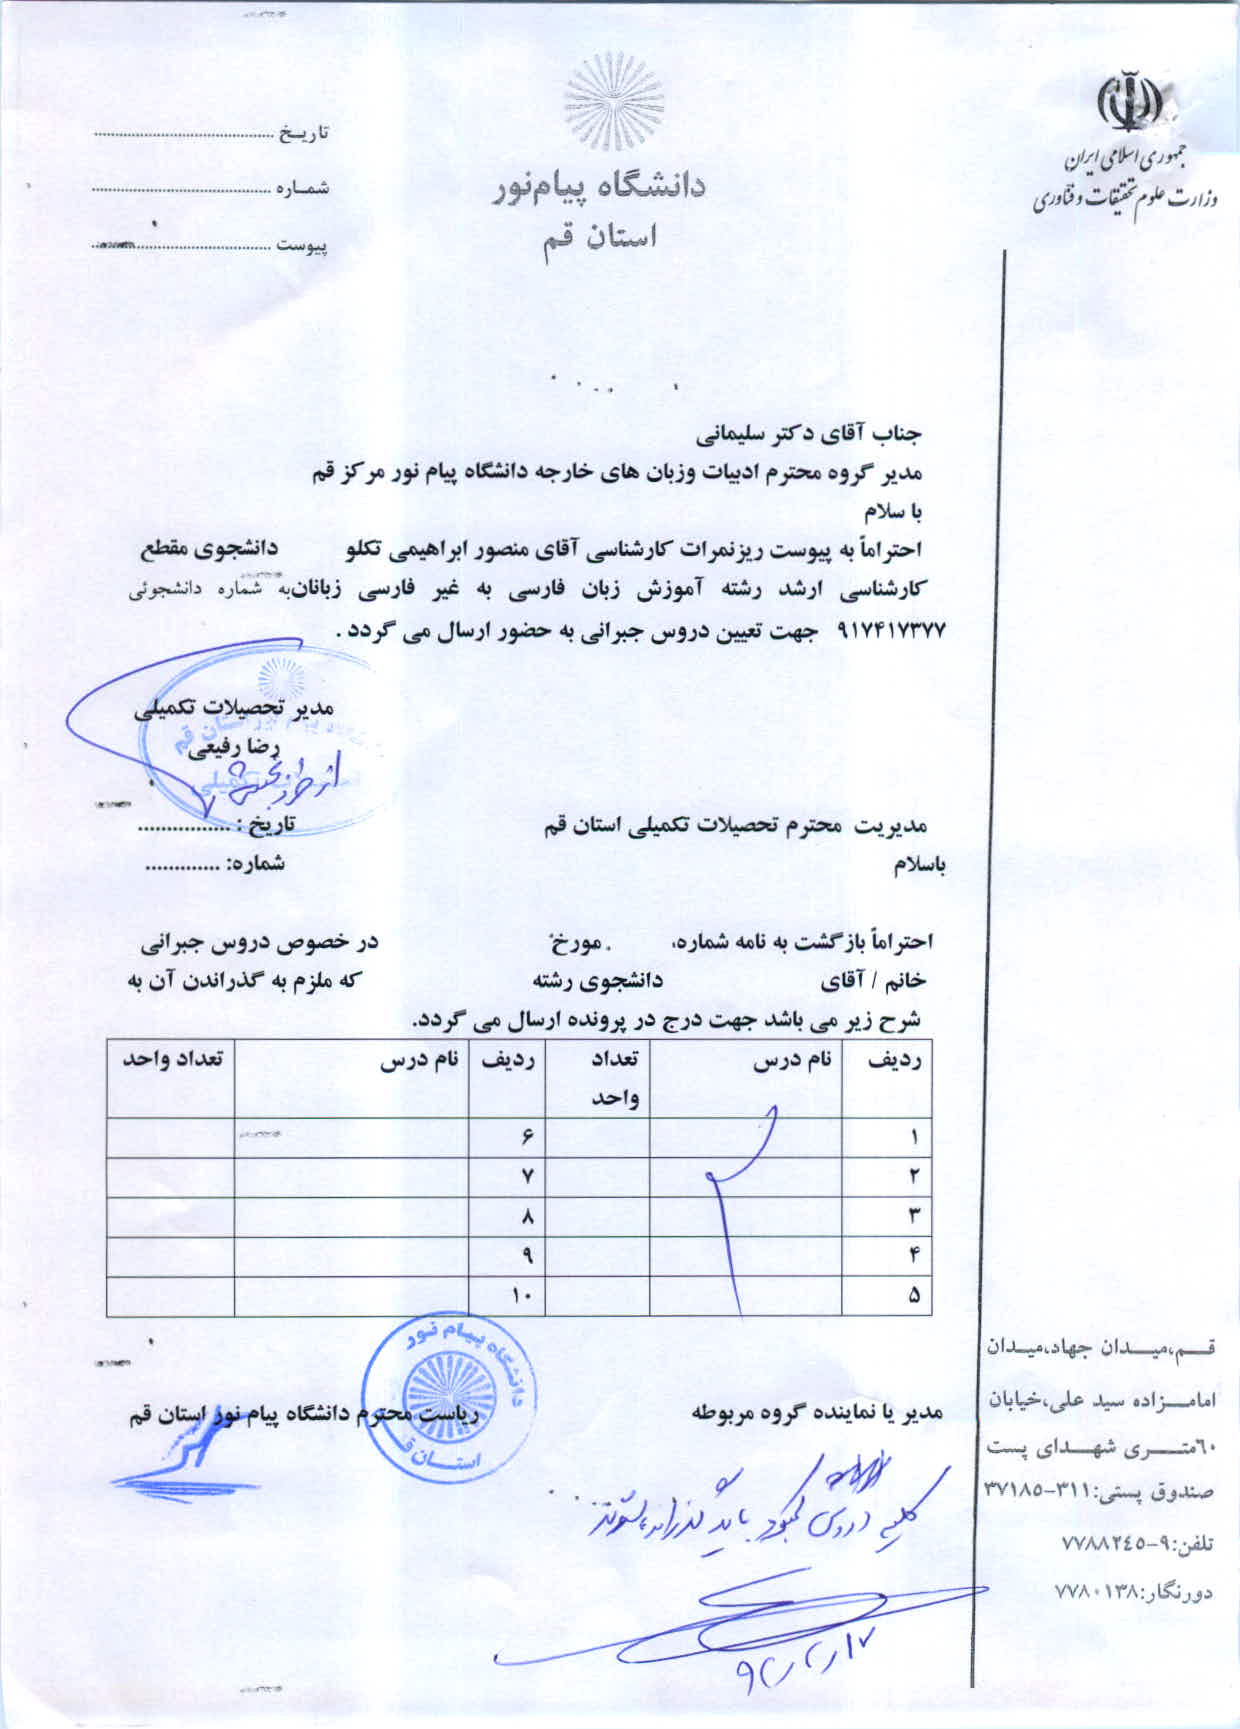 جمهوری اسلامی ایران
وزارت علوم تحقیقات و فناوری
دانشگاه پیام‌نور
استان قم
تاریـخ ........................................
شمـاره ........................................
پیوست ........................................
جناب آقای دکتر سلیمانی
مدیر گروه محترم ادبیات وزبان های خارجه دانشگاه پیام نور مرکز قم
با سلام
احتراماً به پیوست ریزنمرات کارشناسی آقای منصور ابراهیمی تکلو دانشجوی مقطع
کارشناسی ارشد رشته آموزش زبان فارسی به غیر فارسی زبانان به شماره دانشجوئی
۹۱۷۴۱۷۳۷۷ جهت تعیین دروس جبرانی به حضور ارسال می گردد .
مدیر تحصیلات تکمیلی
رضا رفیعی
از طرف
مدیریت محترم تحصیلات تکمیلی استان قم
تاریخ : ................
باسلام
شماره: .............
احتراماً بازگشت به نامه شماره، . مورخ در خصوص دروس جبرانی
خانم / آقای دانشجوی رشته که ملزم به گذراندن آن به
شرح زیر می باشد جهت درج در پرونده ارسال می گردد.
ردیف نام درس تعداد واحد ردیف نام درس تعداد واحد
۱ ۶
۲ ۷
۳ ۸
۴ ۹
۵ ۱۰
دانشگاه پیام نور
استان قم
مدیر یا نماینده گروه مربوطه
ریاست محترم دانشگاه پیام نور استان قم
کلیه دروس کمبود باید گذرانده شوند
قـــم،میـــدان جهاد،میـدان
امامـــزاده سید علی،خیابان
۶۰متـــری شهـــدای پست
صندوق پستی:۳۱۱-۳۷۱۸۵
تلفن:۹-۷۷۸۸۲۴۵
دورنگار:۷۷۸۰۱۳۸